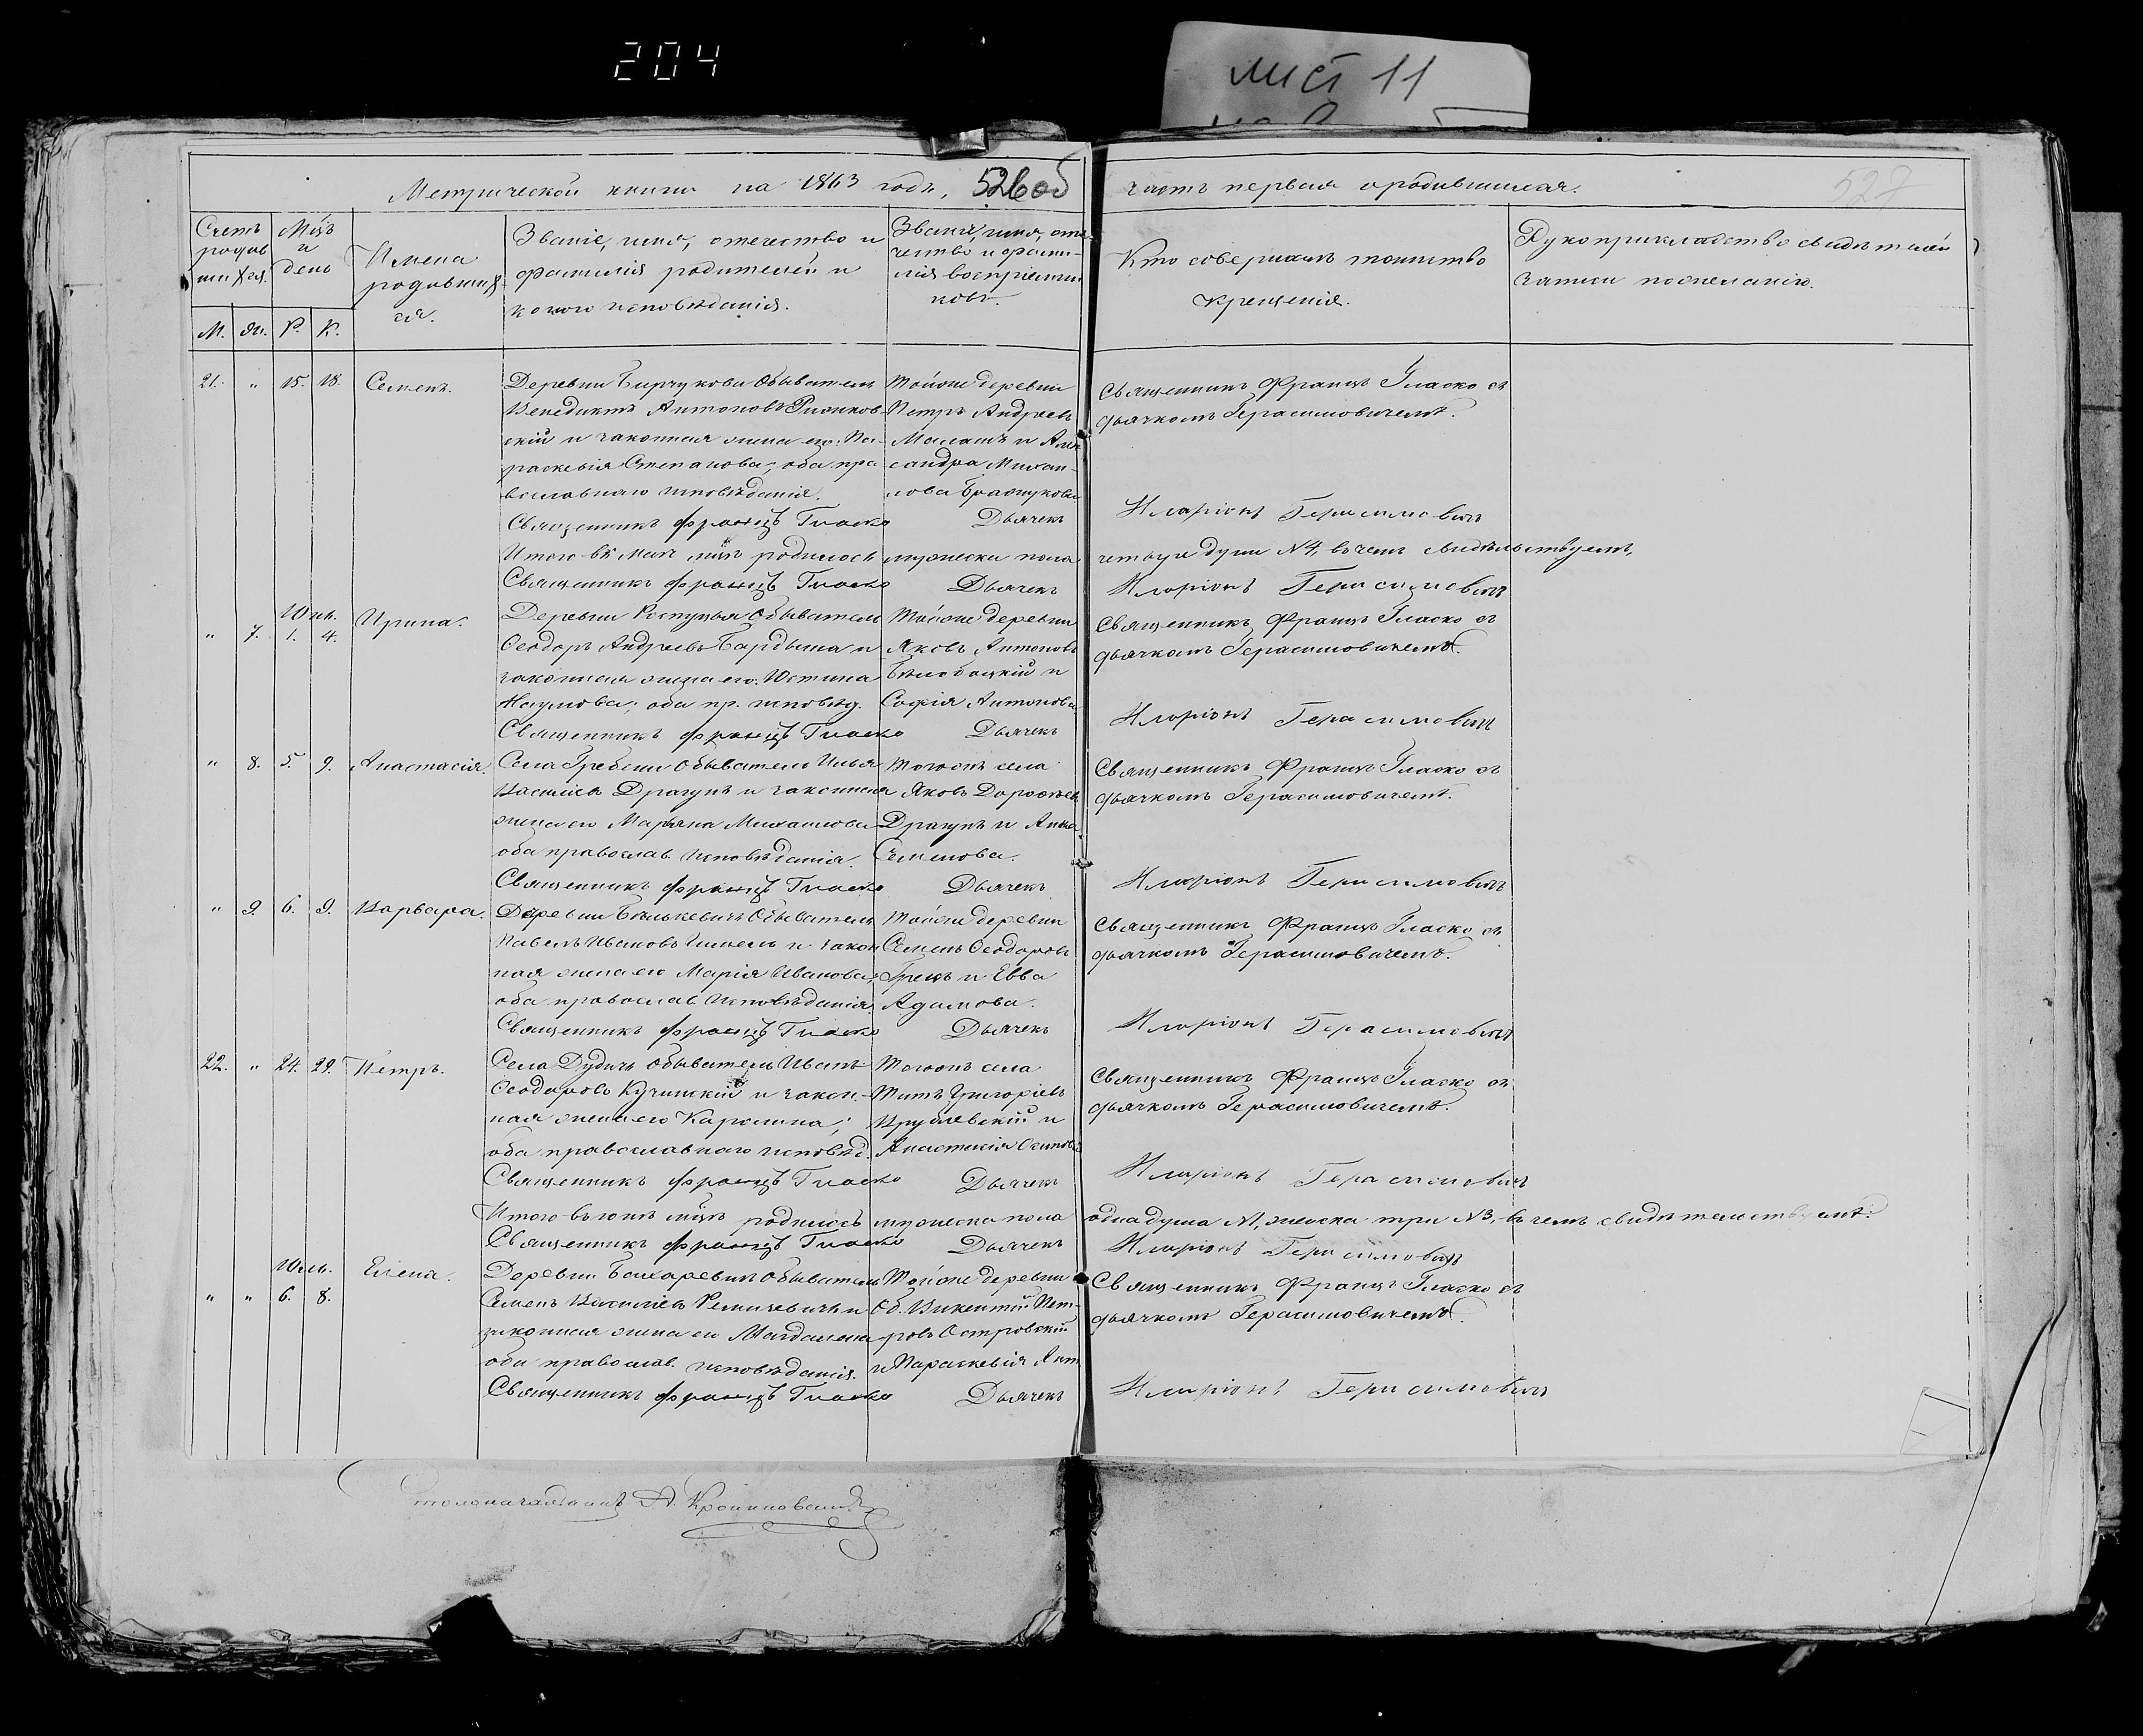 204
лист 11
Метрической книги на 1863 годъ, 526 об
часть первая о родившихся.
527
Счетъ родившихся.
Мцъ и день
Имена родившихся.
Званіе, имя, отечество и
фамилія родителей и
какого исповѣданія.
Званіе, имя, оте-
чество и фами-
лія воспріемни
ковъ.
Кто совершалъ таинство
крещенія.
Рукоприкладство свидѣтелей
записи по желанію.
М. Ж. Р. К.
21. " 15. 18. Семенъ.
Деревни Бирчукова обыватель
Венедиктъ Антоновъ
скій и законная жена его: Па-
раскевія Степанова; оба пра-
вославнаго исповѣданія.
Тойже деревни
Петръ Андреевъ
и Алек
сандра Михаи-
лова
Священникъ Францъ Гласко съ
дьячкомъ Герасимовичемъ.
Священникъ Францъ Гласко Дьячекъ Иларіонъ Герасимовичъ
Итого въ маѣ мцѣ родилось мужеска пола четыре души №4, въ чемъ свидѣтельствуемъ,
Священникъ Францъ Гласко Дьячекъ Иларіонъ Герасимовичъ
Юнь.
" 7. 1. 4. Ирина.
Деревни обыватель
Ѳеодоръ Андреевъ Бардыша и
законная жена его: Юстина
Наумова; оба пр. исповѣд.
Тойже деревни
Яковъ Антоновъ
Бѣлобоцкій и
Софія Антонова
Священникъ Францъ Гласко съ
дьячкомъ Герасимовичемъ.
Священникъ Францъ Гласко Дьячекъ Иларіонъ Герасимовичъ
" 8. 5. 9. Анастасія.
Села Гребени обыватель Илья
Васильевъ Драгунъ и законная
жена его Марьяна Михаилова
оба православ. исповѣданія.
Тогожъ села
Яковъ Дороѳеевъ
Драгунъ и Анна
Семенова.
Священникъ Францъ Гласко съ
дьячкомъ Герасимовичемъ.
Священникъ Францъ Гласко Дьячекъ Иларіонъ Герасимовичъ
" 9. 6. 9. Варвара.
Деревни Бѣлькевичъ обыватель
Павелъ Ивановъ и закон
ная жена его Марія Иванова;
оба православ. исповѣданія
Тойже деревни
Семенъ Ѳеодоровъ
и Евва
Адамова.
Священникъ Францъ Гласко съ
дьячкомъ Герасимовичемъ.
Священникъ Францъ Гласко Дьячекъ Иларіонъ Герасимовичъ
22. " 24. 29. Петръ.
Села Дудичъ обыватель Иванъ
Ѳеодоровъ Кучинскій и закон-
ная жена его Каролина;
оба православнаго исповѣд.
Тогожъ села
Титъ Григоріевъ
Врублевскій и
Анастасія Осипова
Священникъ Францъ Гласко съ
дьячкомъ Герасимовичемъ.
Священникъ Францъ Гласко Дьячекъ Иларіонъ Герасимовичъ
Итого въ юнѣ мцѣ родилось мужеска пола одна душа №1, женска три №3, въ чемъ свидѣтельствуемъ:
Священникъ Францъ Гласко Дьячекъ Иларіонъ Герасимовичъ
Юль.
" " 6. 8. Елена.
Деревни обыватель
Семенъ Васильевъ и
законная жена его Магдалена
оба православ. исповѣданія.
Тойже деревни
Об. Викентій Пет-
ровъ Островскій
и Параскевія Ант.
Священникъ Францъ Гласко съ
дьячкомъ Герасимовичемъ.
Священникъ Францъ Гласко Дьячекъ Иларіонъ Герасимовичъ
Столоначальникъ